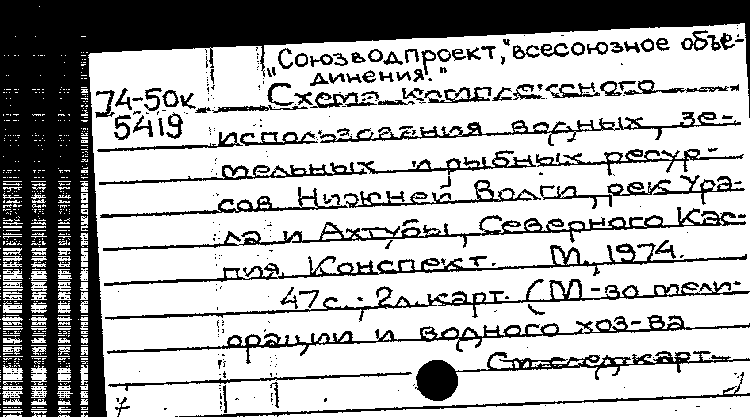 "Союзводпроект, "всесоюзное объе-
динения."
74-50к Схема комплексного
5419 использования водных, зе-
мельных и рыбных ресур-
сов Нижней Волги, рек Ура-
ла и Ахтубы, Северного Кас-
пия. Конспект. М., 1974.
47с.; 2л.карт. (М-во мели-
орации и водного хоз-ва
См.след.карт.